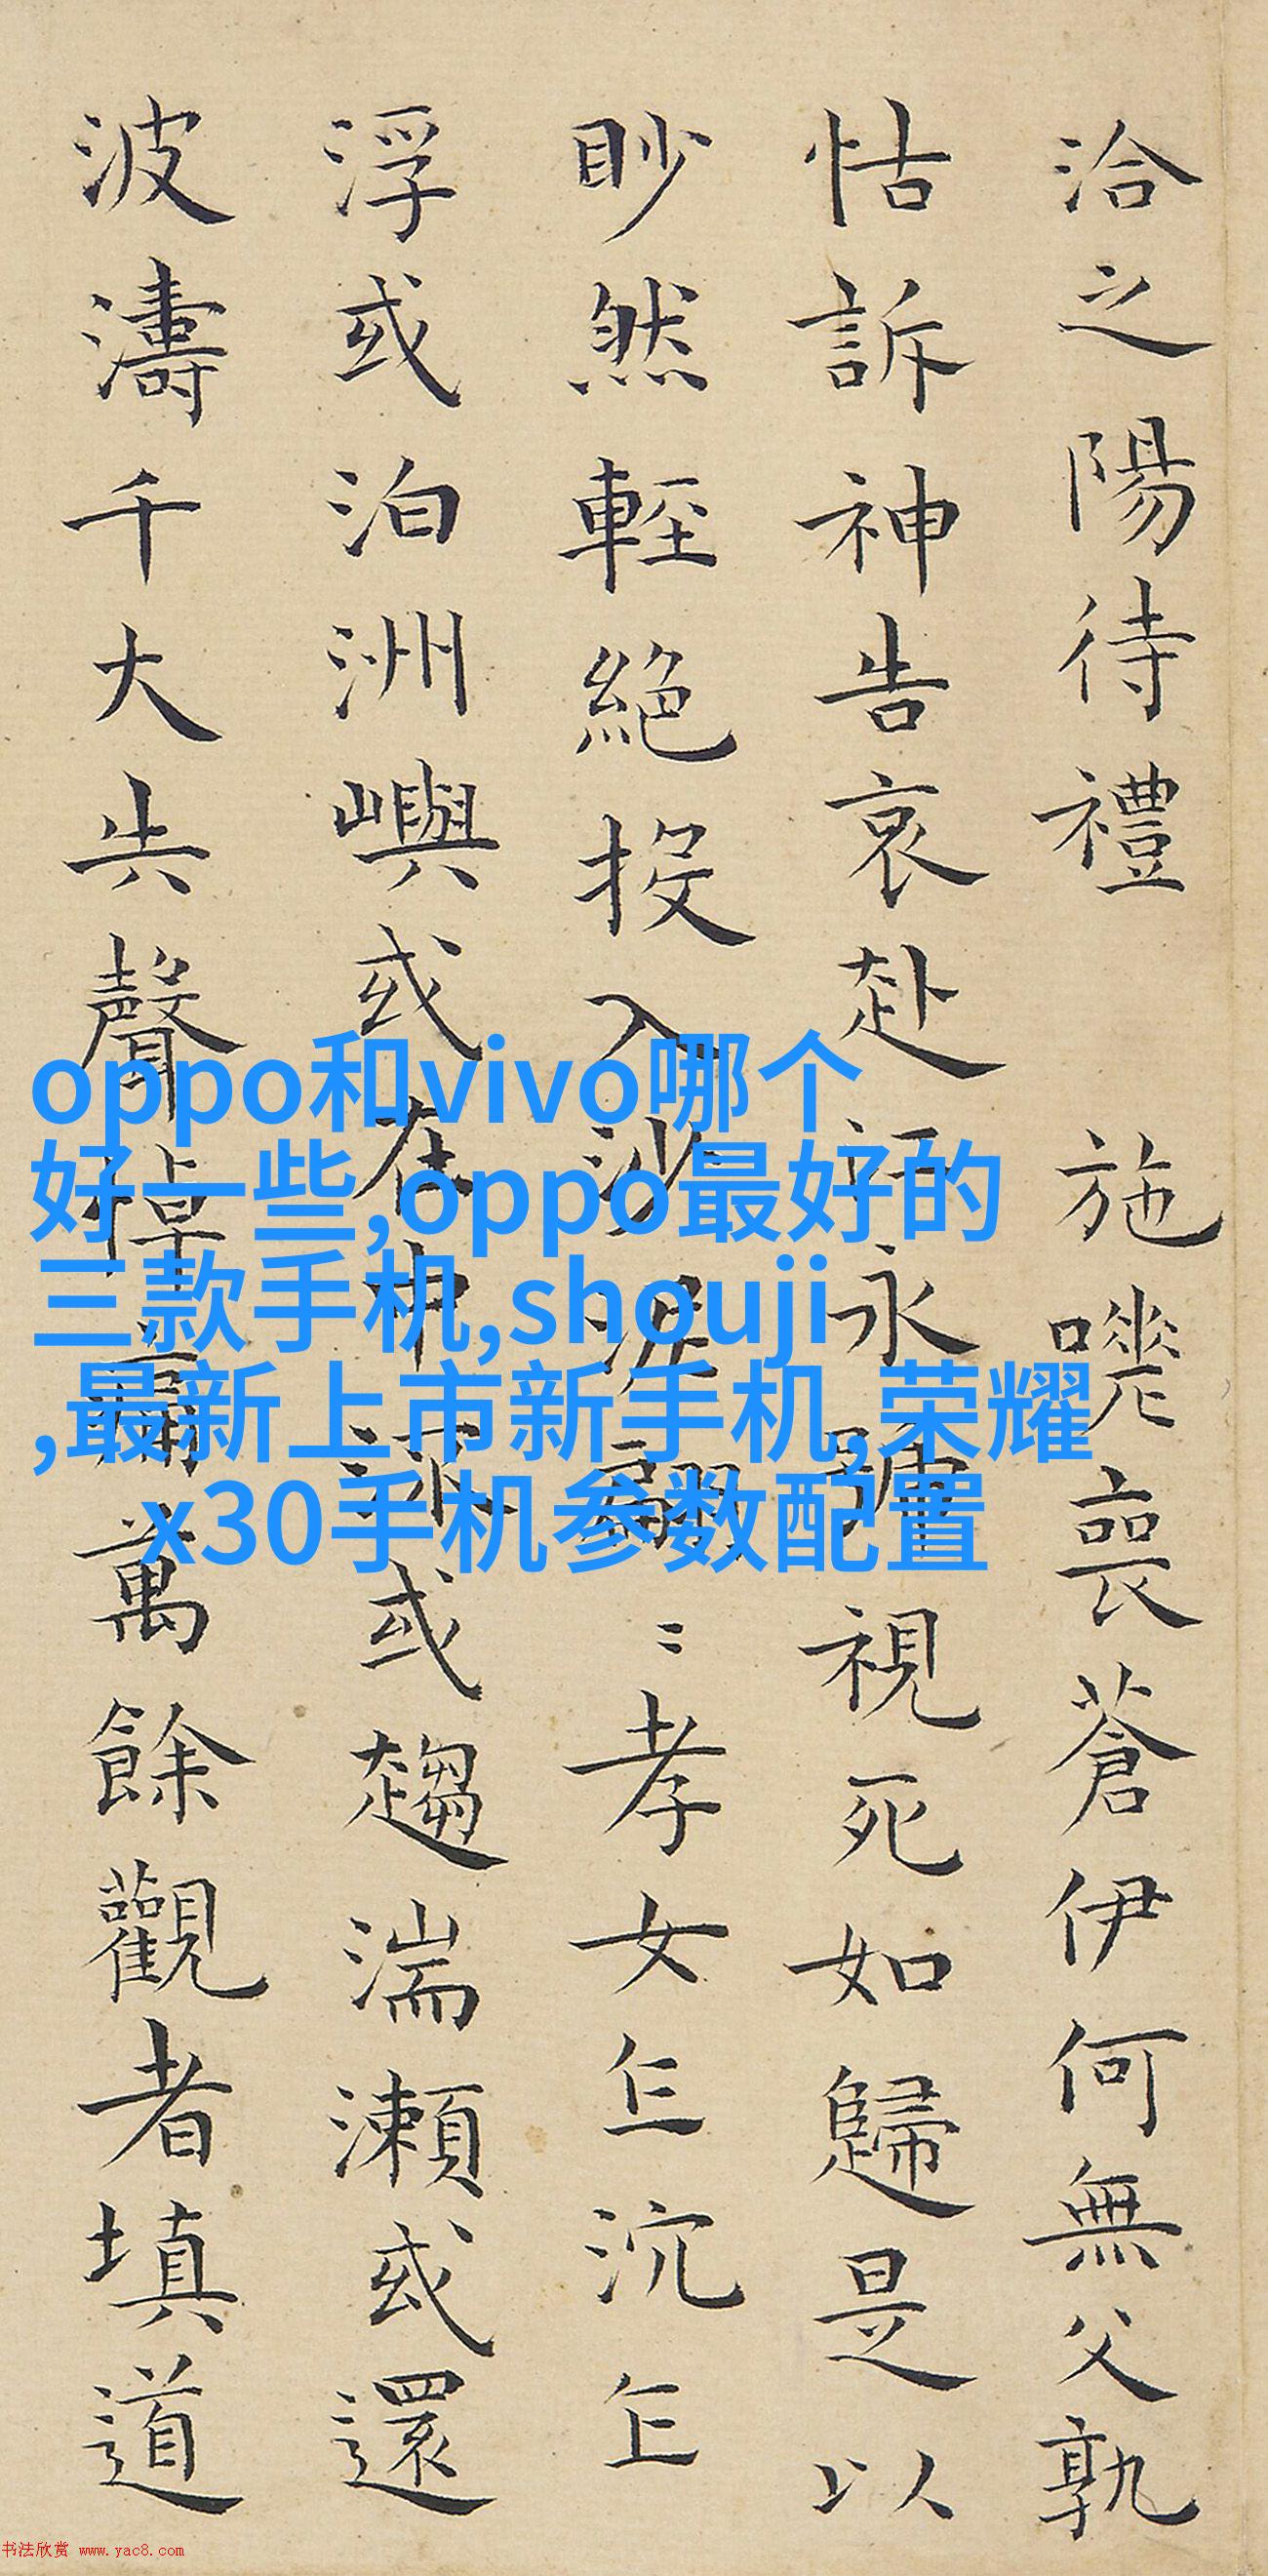 洽之陽待禮 施嗟喪蒼伊何無父孰
怙訴神告哀赴江永號視死如歸是以
眇然輕絕投入沙泥翩〻孝女乍沉乍
浮或泊洲嶼或在中流或趨湍瀨或還
波濤千大失聲悼痛萬餘觀者填道
oppo和vivo哪个
好一些,oppo最好的
三款手机,shouji
,最新上市新手机,荣耀
x30手机参数配置
书法欣赏 www.yac8.com